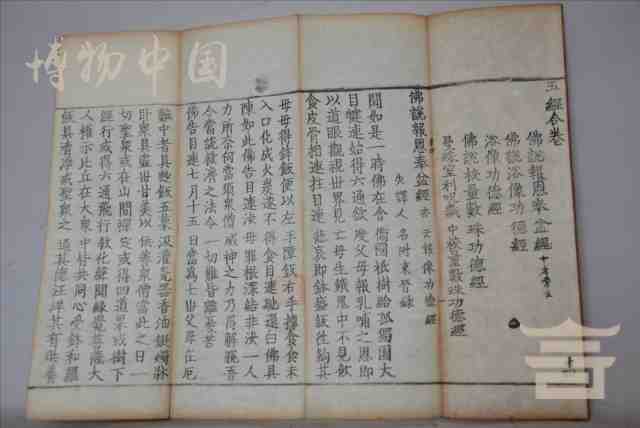 博物中国
五經合卷
佛說報恩奉盆經
佛說浴像功德經
浴像功德經
佛說校量數珠功德經
曼殊室利呪藏中校量數珠功德經
佛說報恩奉盆經 亦云報像功德經
失譯人名附東晉錄
聞如是一時佛在舍衛國祇樹給孤獨園大
目犍連始得六通欲度父母報乳哺之恩即
以道眼觀視世界見亡母生餓鬼中不見飲
食皮骨相連拄目連悲哀即鉢盛飯往餉其
母母得鉢飯便以左手障飯右手摶食食未
入口化成火炭遂不得食目連馳還白佛具
陳如此佛告目連汝母罪根深結非汝一人
力所奈何當須衆僧威神之力乃得解脫吾
今當說救濟之法令一切難皆離憂苦
佛告目連七月十五日當為七世父母在厄
難中者具麨飯五菓汲灌盆器香油鋌燭牀
臥衆具盡世甘美以供養衆僧當此之日一
切聖衆或在山間禪定或得四道果或樹下
經行或得六通飛行教化聲聞緣覺菩薩大
人權示比丘在大衆中皆共同心受鉢和羅
飯具清淨戒聖衆之道其德汪洋其有供養